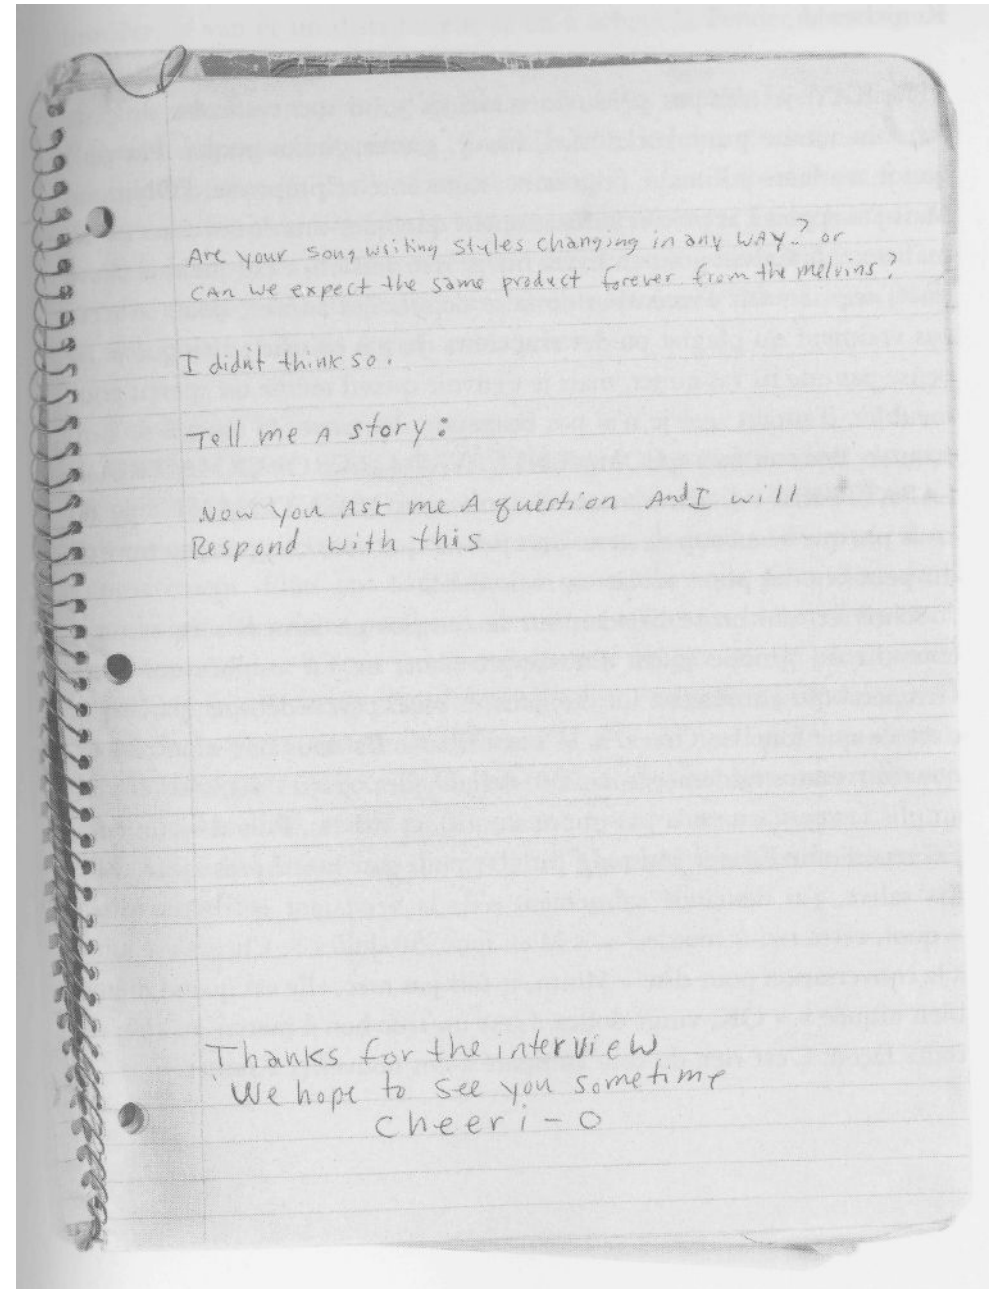 Are your song writing styles changing in any way? or
CAn we expect the same product forever from the melvins?
I didn't think so.
Tell me A story:
Now you Ask me A question And I will
Respond with this
Thanks for the interview
We hope to see you sometime
cheeri-o